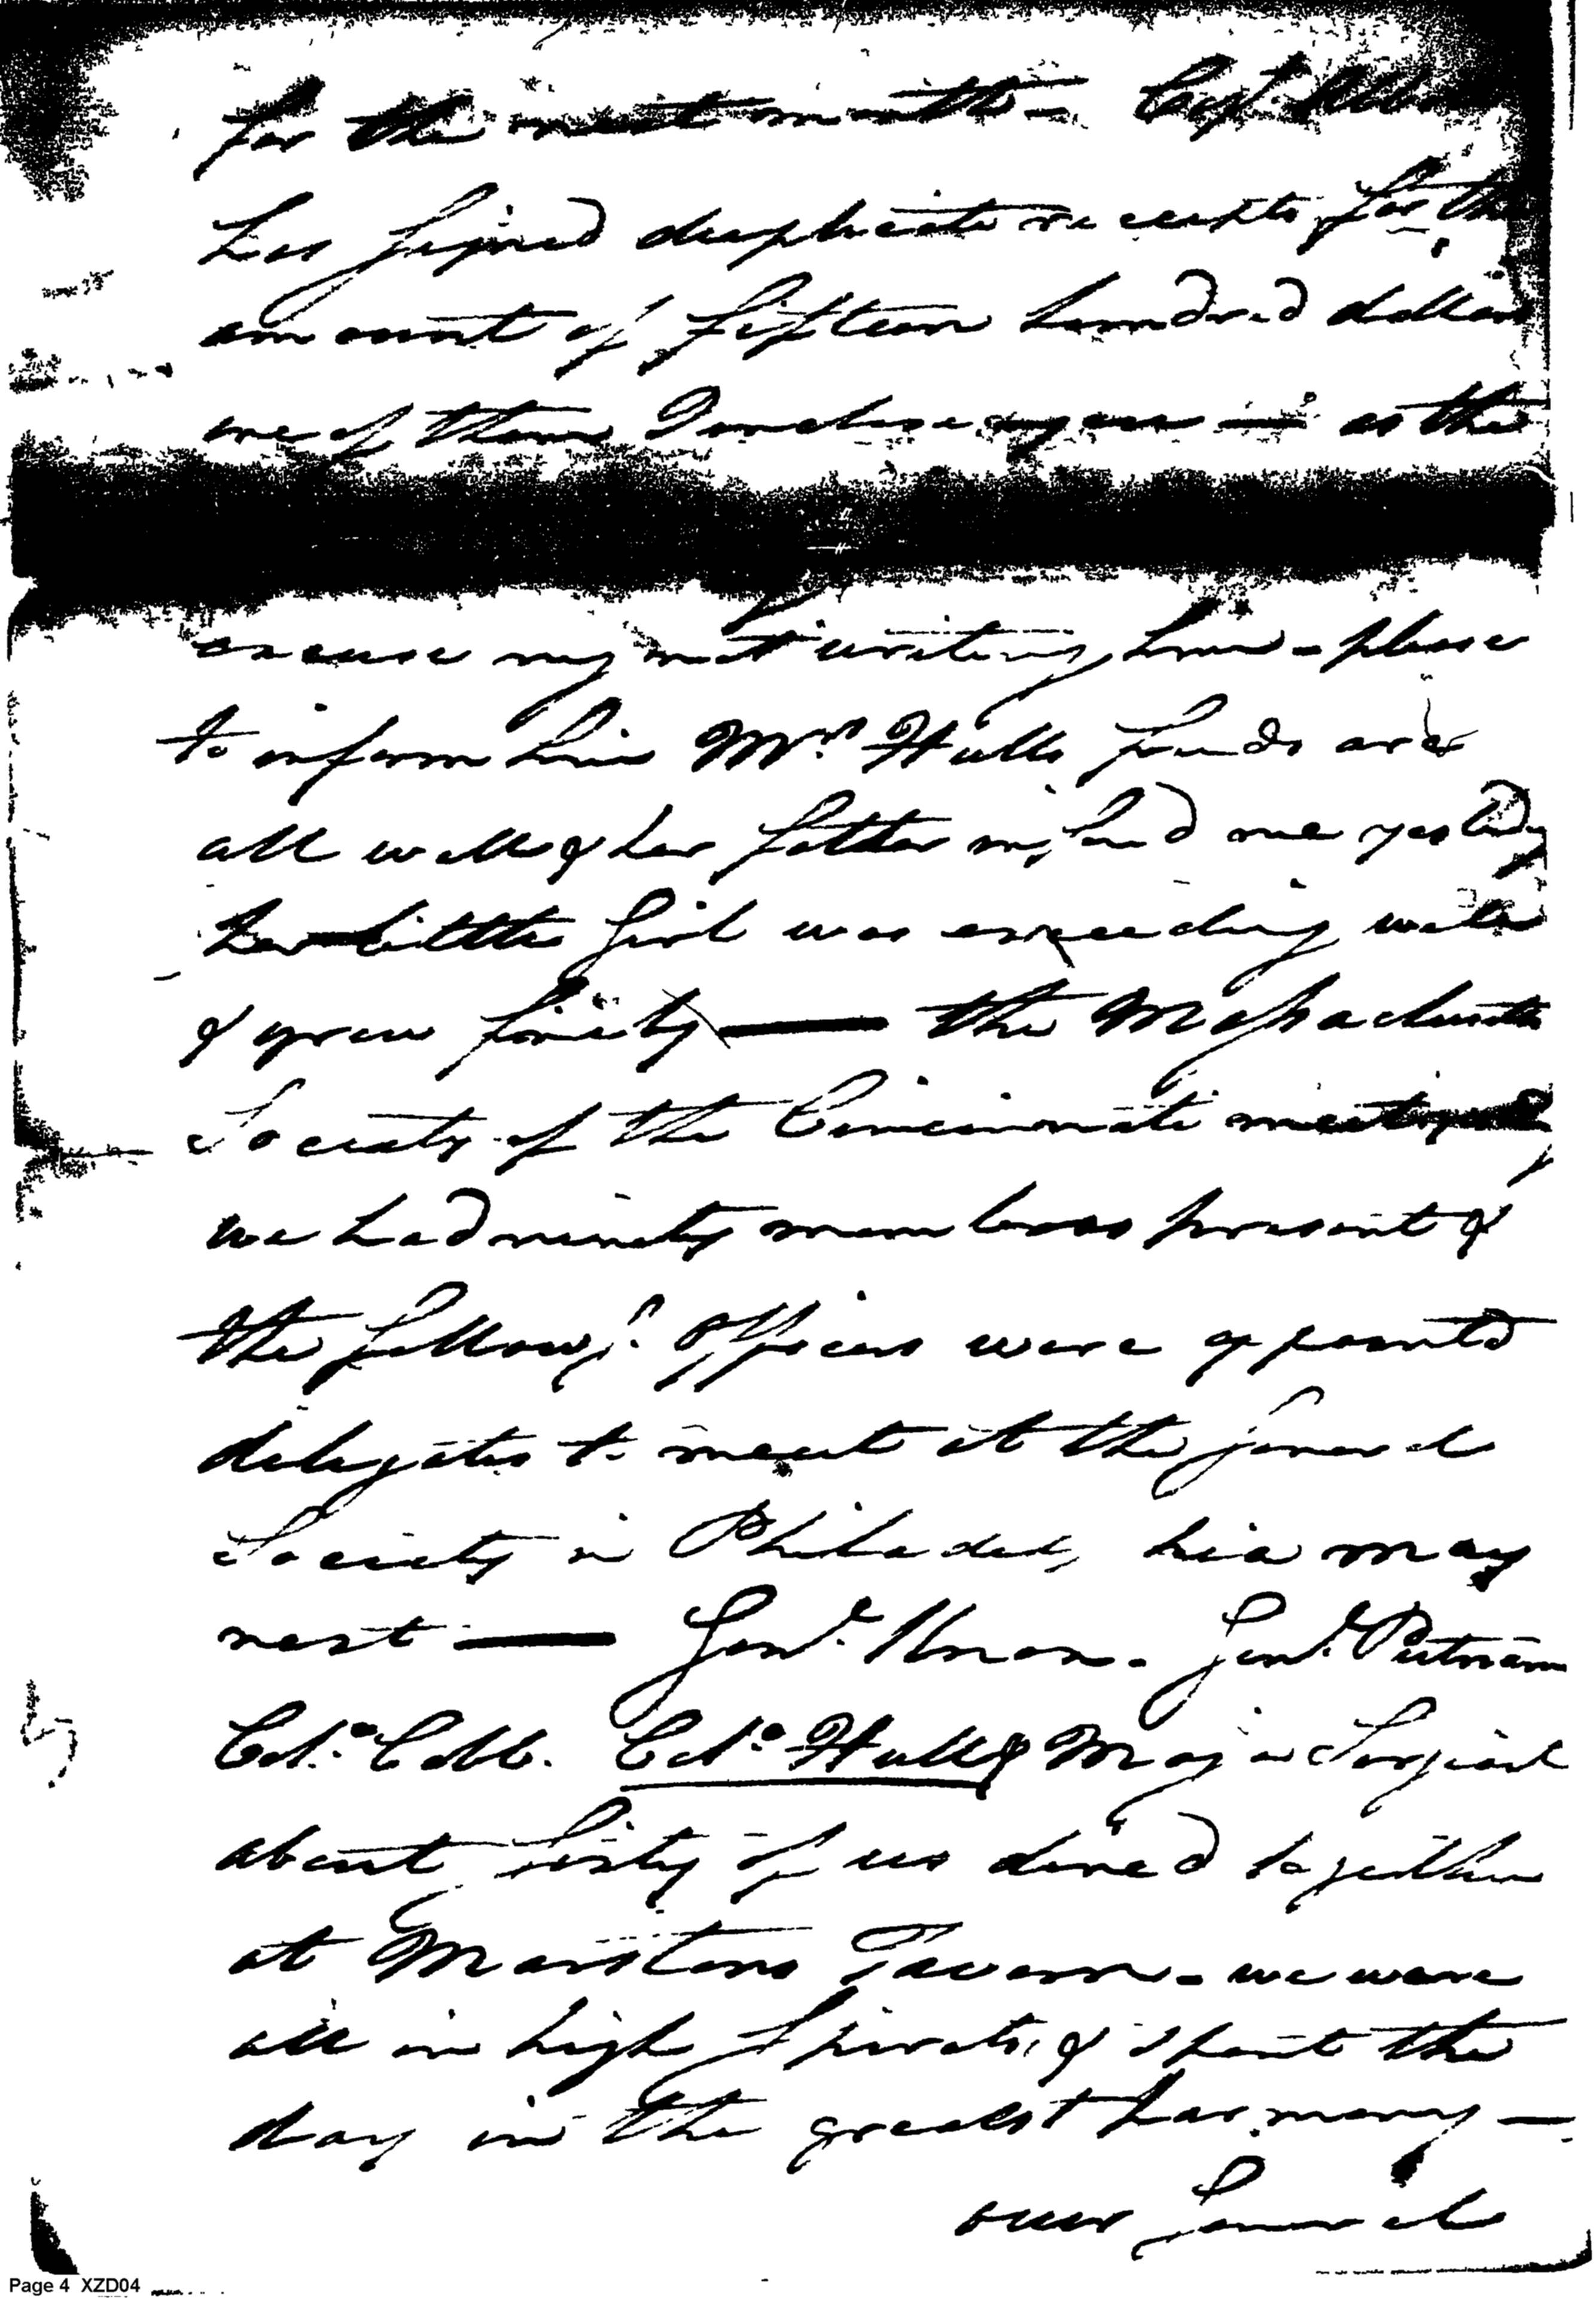 for the next month - Capt.
has signed duplicate receipts for the
amount of fifteen hundred dollars
one of them I enclose you — as the
excuse my not writing him - please
to inform him Mrs. Hulls friends are
all well & her father inform'd me yesterday
her little Girl was exceeding well
& grew finely — the Massachusetts
Society of the Cincinnati met
we had ninety members present &
the follow.g Officers were appointed
delegates to meet at the general
Society in Philadelphia may
next — Genl. Knox - Genl. Putnam
Colo. Cobb. Colo. Hull & Major Sargent
about sixty of us dined together
at Marstons Tavern - we were
all in high Spirits, & spent the
day in the greatest harmony —
our General
Page 4 XZD04